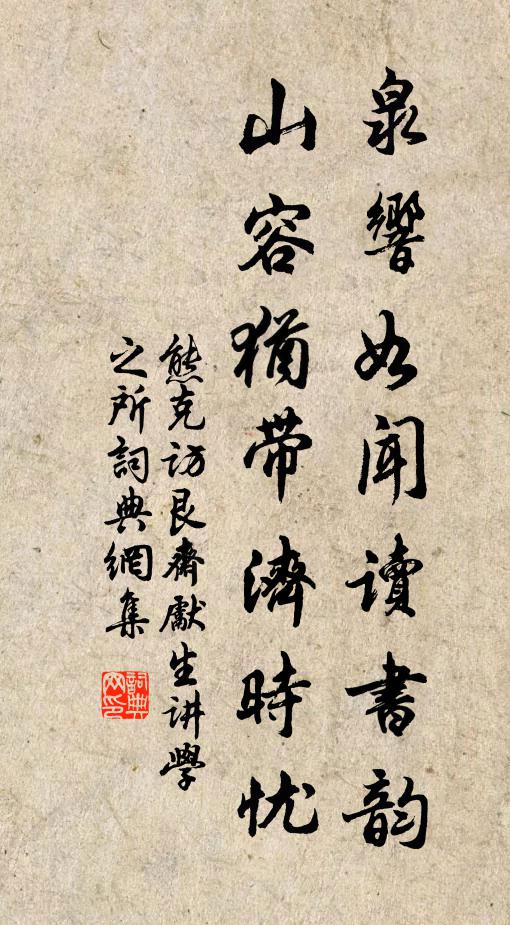 泉響如闻讀書韵
山容猶带濟時忧
熊克访艮齋獻生讲學
之所詞典網集
詞典网印